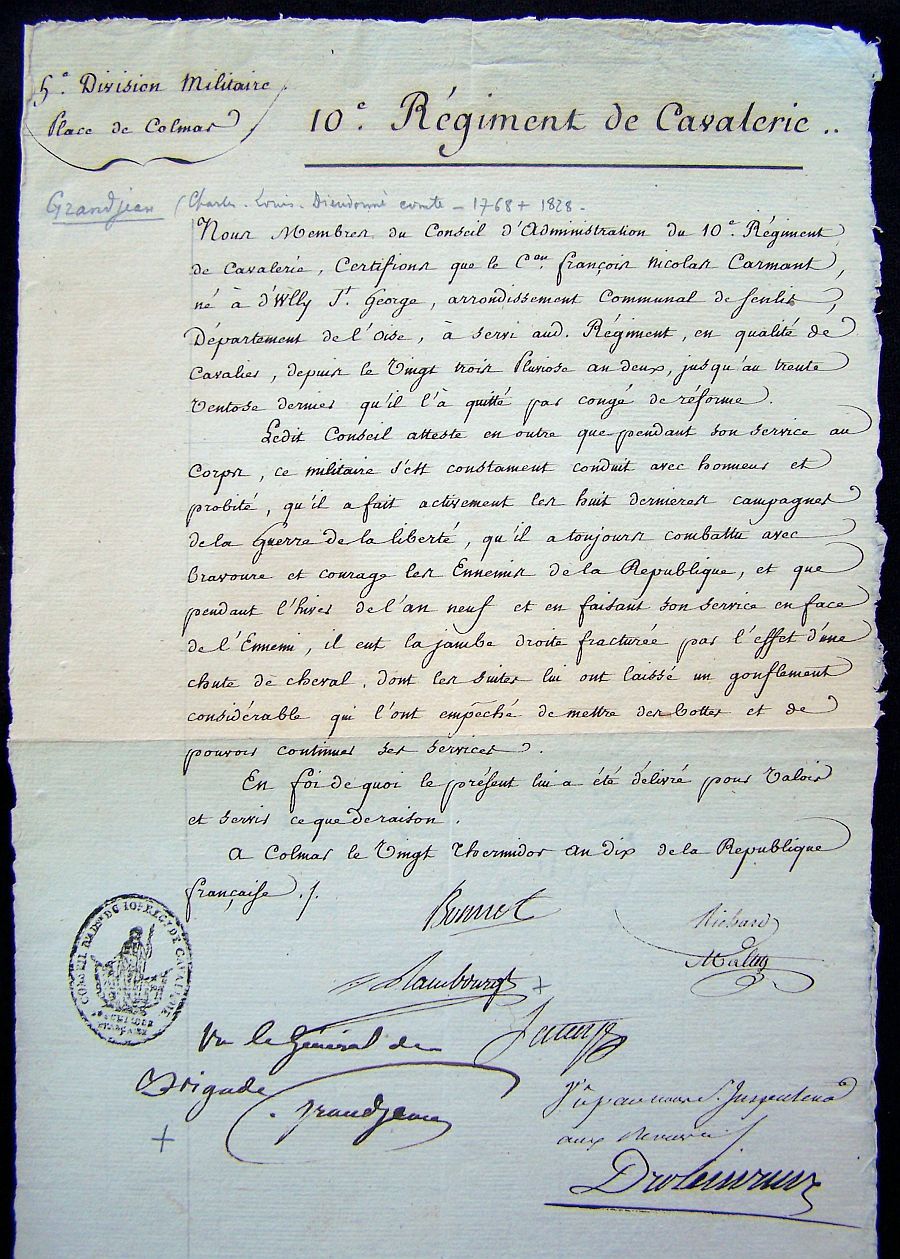 5e. Division Militaire
Place de Colmar
10e. Régiment de Cavalerie ..
Grandjean (Charles-Louis-Dieudonné comte - 1768 + 1828 -
Nous Membres du Conseil d'Administration du 10e. Régiment
de Cavalerie, Certifions que le Cen. françois Nicolas Carmant,
né à d'Wlly St. George, arrondissement Communal de Senlis,
Département de l'Oise, à servi aud. Régiment, en qualité de
Cavalier, depuis le Vingt trois Pluviose an deux, jusqu'au trente
Ventose dernier qu'il l'à quitté par congé de réforme.
Ledit Conseil atteste en outre que pendant son service au
Corps, ce militaire s'est constament conduit avec honneur et
probité, qu'il a fait activement les huit dernieres campagnes
de la Guerre de la liberté, qu'il a toujours combattu avec
bravoure et courage les Ennemis de la Republique, et que
pendant l'hiver de l'an neuf et en faisant son service en face
de l'Ennemi, il eut la jambe droite fracturée par l'effet d'une
chute de cheval, dont les suites lui ont laissé un gonflement
considérable qui l'ont empêché de mettre des bottes et de
pouvoir continuer ses services.
En foi de quoi le présent lui a été délivré pour Valoir
et servir ce que de raison.
A Colmar le Vingt Thermidor an dix de la Republique
française ./.
Richard
CONSEIL D'ADon. DU 10e. REGt. DE CAVALERIE
FRANÇAISE
Vu le Général de
Brigade
Grandjean